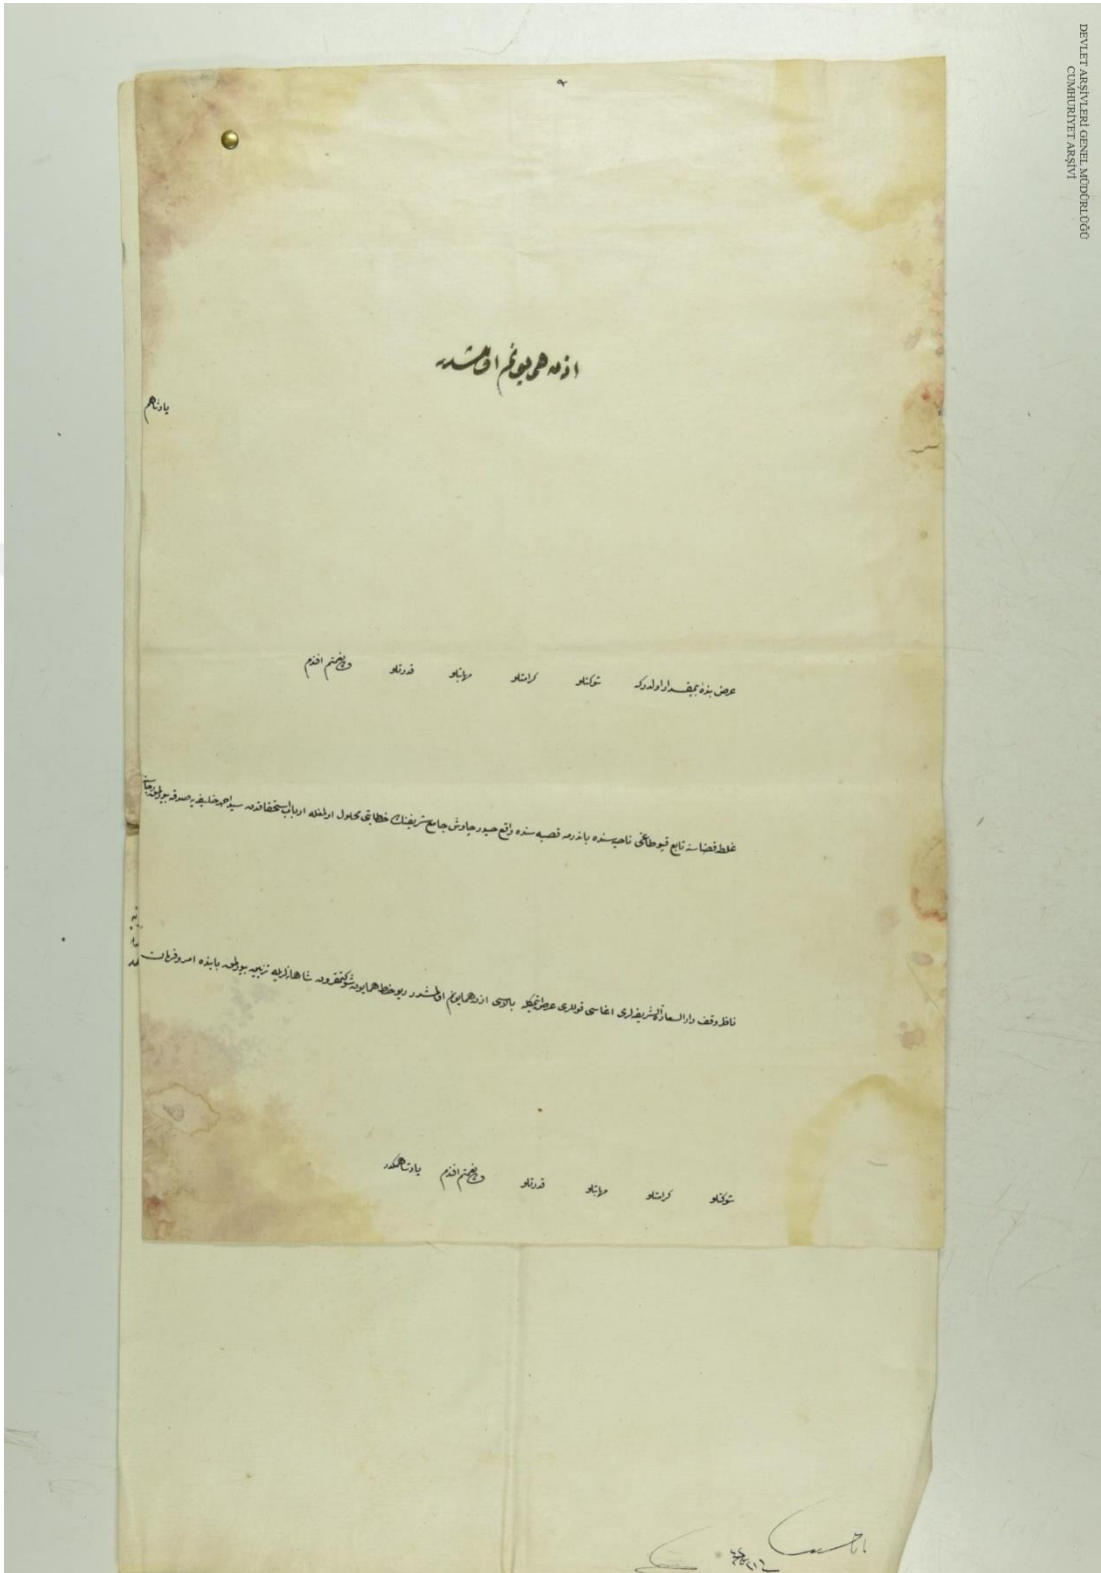 DEVLET ARŞİVLERİ GENEL MÜDÜRLÜĞÜ
CUMHURİYET ARŞİVİ
اذن همايونم اولمشدر
پادشاهم
عرض بنده بيمقدار اولدر كه شوكتلو كرامتلو مهابتلو قدرتلو ولى نعمتم افندم
غلطه قضاسنه تابع قپوطاغى ناحيه سنده باندرمه قصبه سنده واقع حيدر چاوش جامع شريفنك خطابتى محلول اولمغله ارباب استحقاقدن سيد احمد خليفه يه صدقه بيورلمق رجاسنه
ناظر وقف دار السعادة الشريفه لرى اغاسى قوللرى عرض ايتمكله بالاسى اذن همايونم اولمشدر ديو خط همايون شوكتمقرون شاهانه لريله تزيين بيورلمق بابنده امر و فرمان
شوكتلو كرامتلو مهابتلو قدرتلو ولى نعمتم افندم پادشاهمكدر